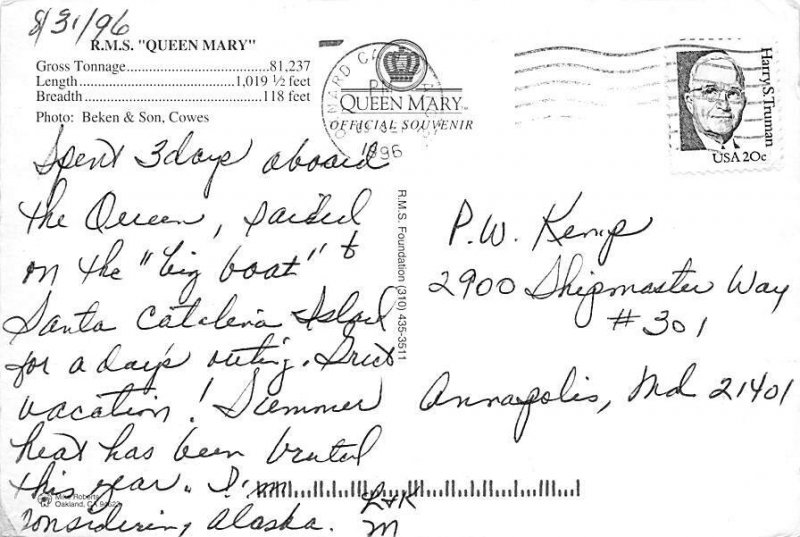 8/31/96
R.M.S. "QUEEN MARY"
Gross Tonnage 81,237
Length 1,019 ½ feet
Breadth 118 feet
Photo: Beken & Son, Cowes
QUEEN MARY
OFFICIAL SOUVENIR
1996
Harry S. Truman
USA 20c
Spent 3 days aboard
the Queen, sailed
on the "big boat" to
Santa Catalina Island
for a day's outing. Great
vacation! Summer
heat has been brutal
this year. I'm
considering Alaska.
L&K
M
R.M.S. Foundation (310) 435-3511
P.W. Kemp
2900 Shipmaster Way
#301
Annapolis, Md 21401
Mike Roberts
Oakland, CA 94623